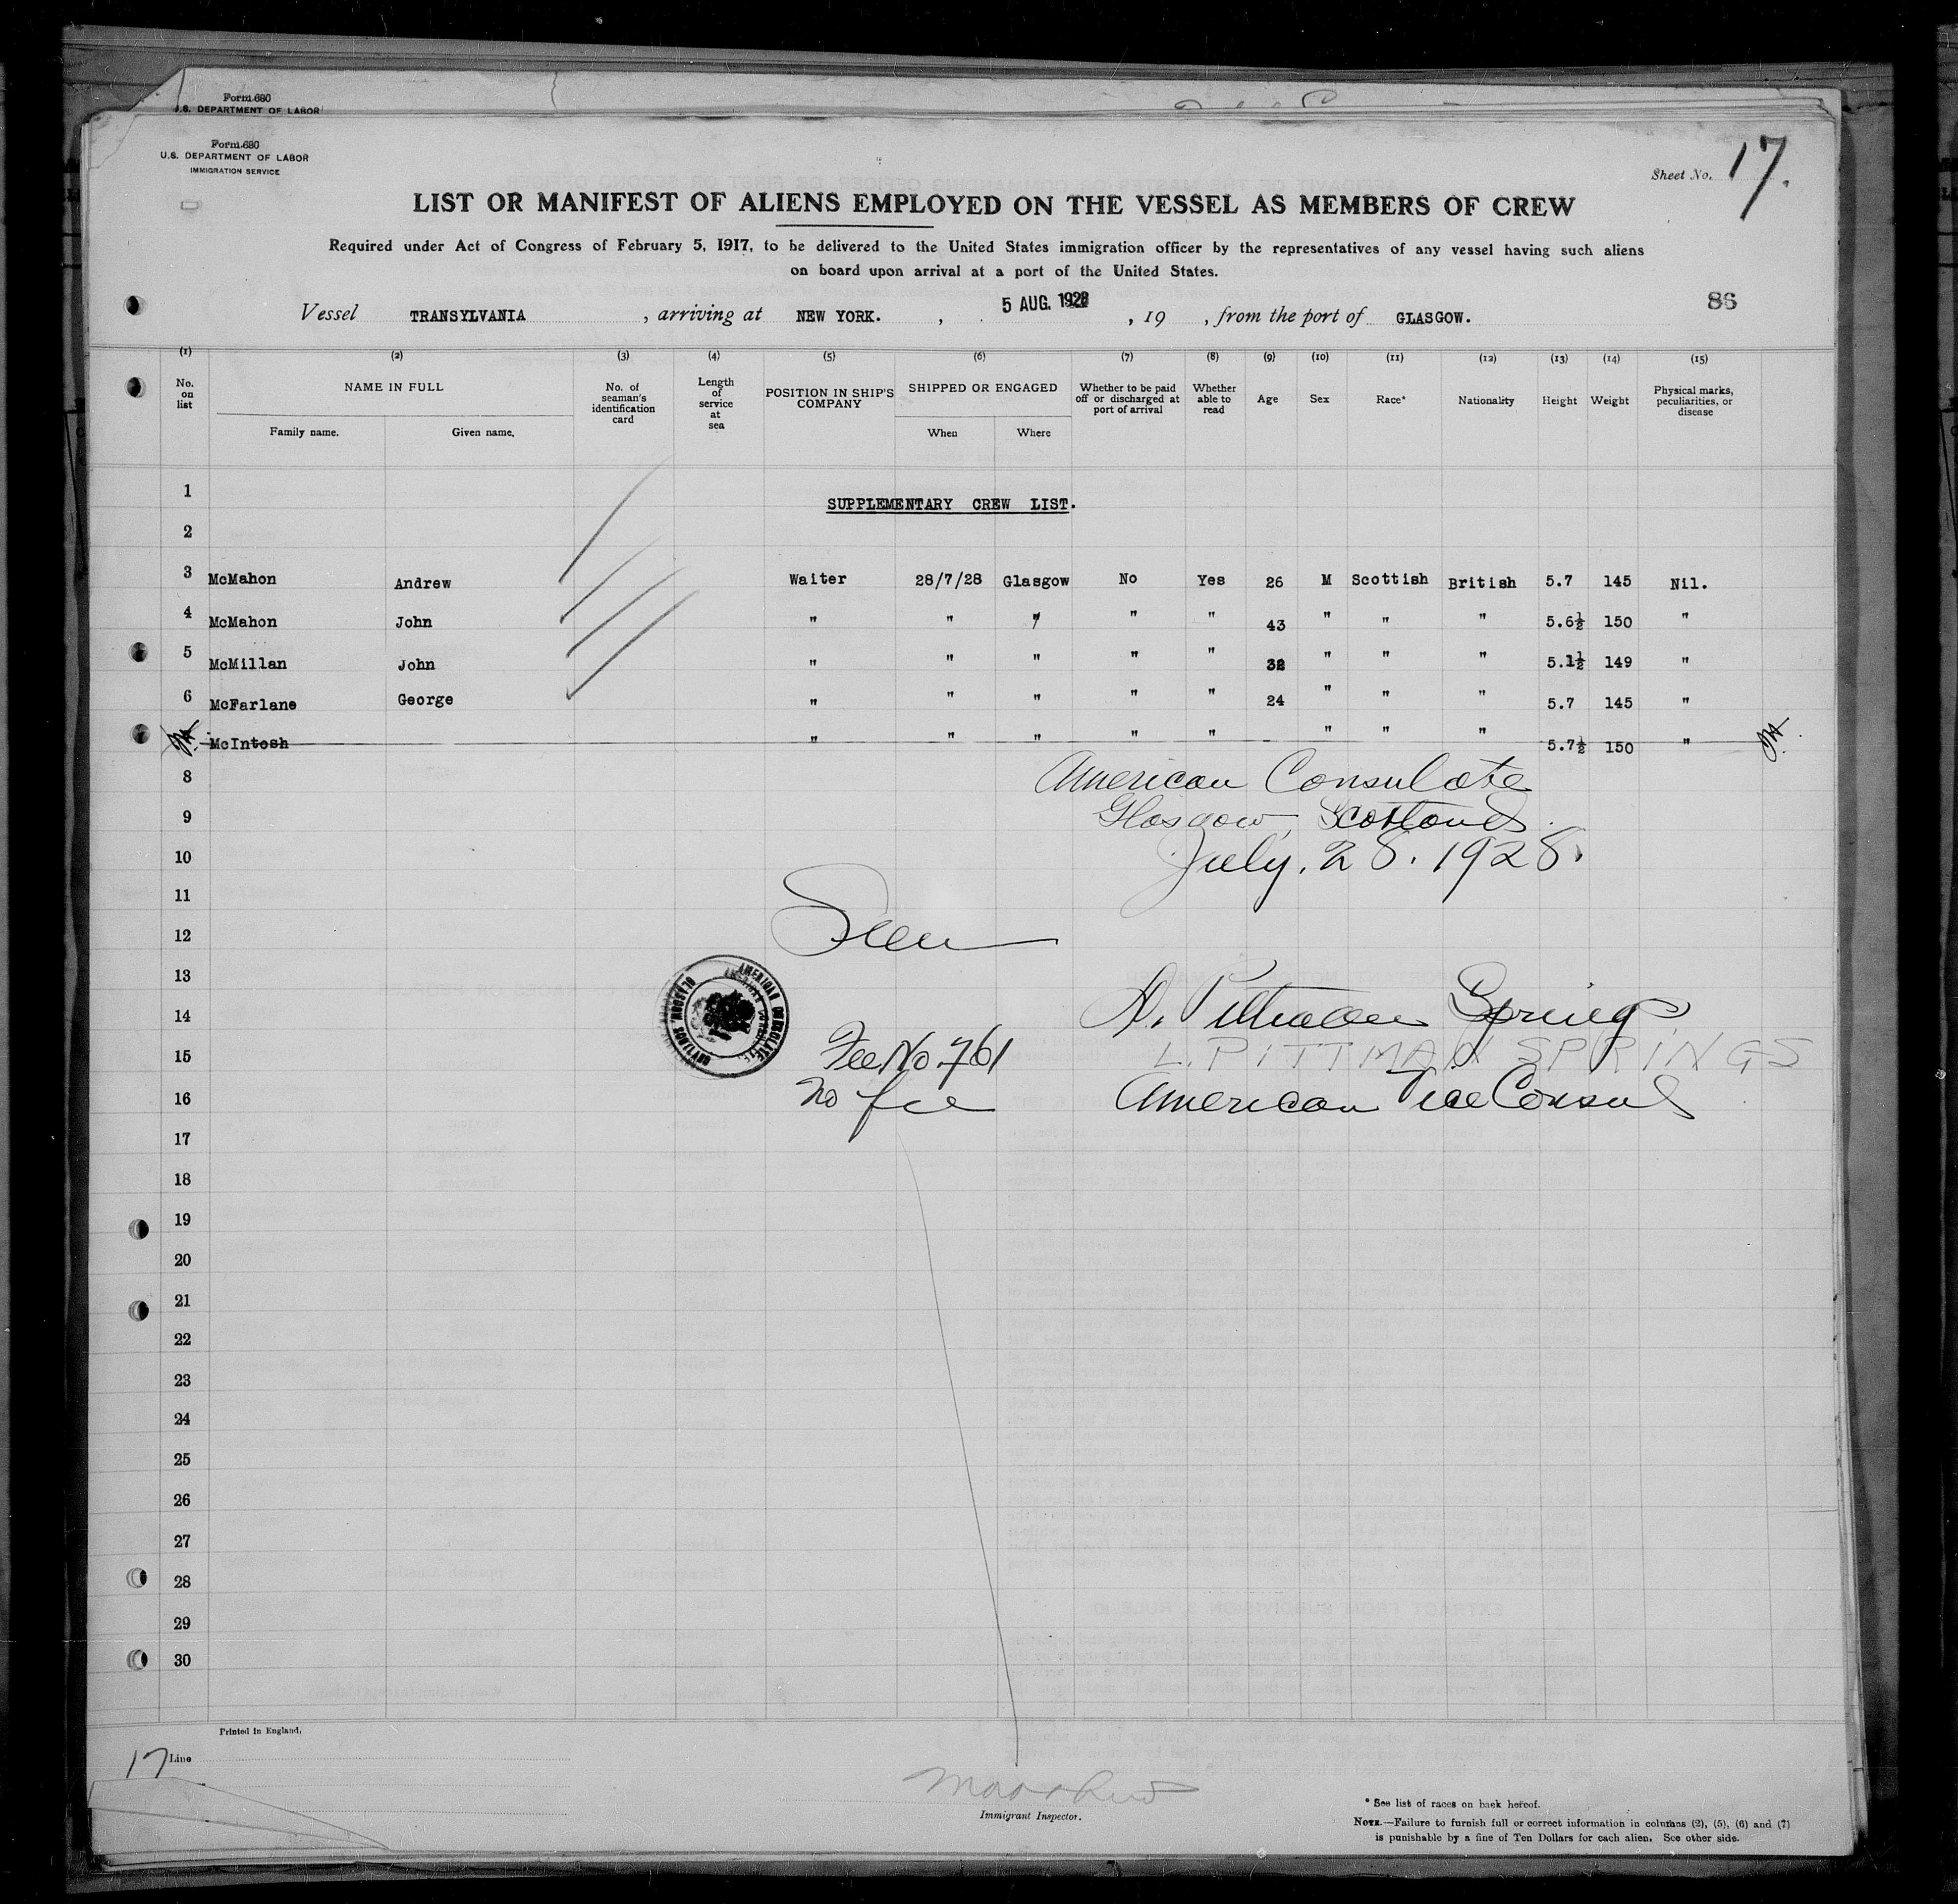 Form 680
U.S. DEPARTMENT OF LABOR
Form 680
U.S. DEPARTMENT OF LABOR
IMMIGRATION SERVICE
Sheet No. 17.
LIST OR MANIFEST OF ALIENS EMPLOYED ON THE VESSEL AS MEMBERS OF CREW
Required under Act of Congress of February 5, 1917, to be delivered to the United States immigration officer by the representatives of any vessel having such aliens
on board upon arrival at a port of the United States.
86
Vessel TRANSYLVANIA, arriving at NEW YORK., 5 AUG. 1928, 19 , from the port of GLASGOW.
(1) (2) (3) (4) (5) (6) (7) (8) (9) (10) (11) (12) (13) (14) (15)
No. on list NAME IN FULL Family name. Given name. No. of seaman's identification card Length of service at sea POSITION IN SHIP'S COMPANY SHIPPED OR ENGAGED When Where Whether to be paid off or discharged at port of arrival Whether able to read Age Sex Race* Nationality Height Weight Physical marks, peculiarities, or disease
1
SUPPLEMENTARY CREW LIST.
2
3 McMahon Andrew Waiter 28/7/28 Glasgow No Yes 26 M Scottish British 5.7 145 Nil.
4 McMahon John " " " " " 43 " " " 5.6½ 150 "
5 McMillan John " " " " " 32 " " " 5.1½ 149 "
6 McFarlane George " " " " " 24 " " " 5.7 145 "
McIntosh " " " " " " " " 5.7½ 150 "
8 American Consulate
9 Glasgow, Scotland.
10 July. 28. 1928.
11
12 Seen
13
AMERICAN CONSULATE GLASGOW, SCOTLAND
14 L. Pittman Springs
15 Fee No 761 L. PITTMAN SPRINGS
16 No fee American Vice Consul
17
18
19
20
21
22
23
24
25
26
27
28
29
30
Printed in England.
17 Line
Immigrant Inspector.
* See list of races on back hereof.
NOTE.—Failure to furnish full or correct information in columns (2), (5), (6) and (7)
is punishable by a fine of Ten Dollars for each alien. See other side.